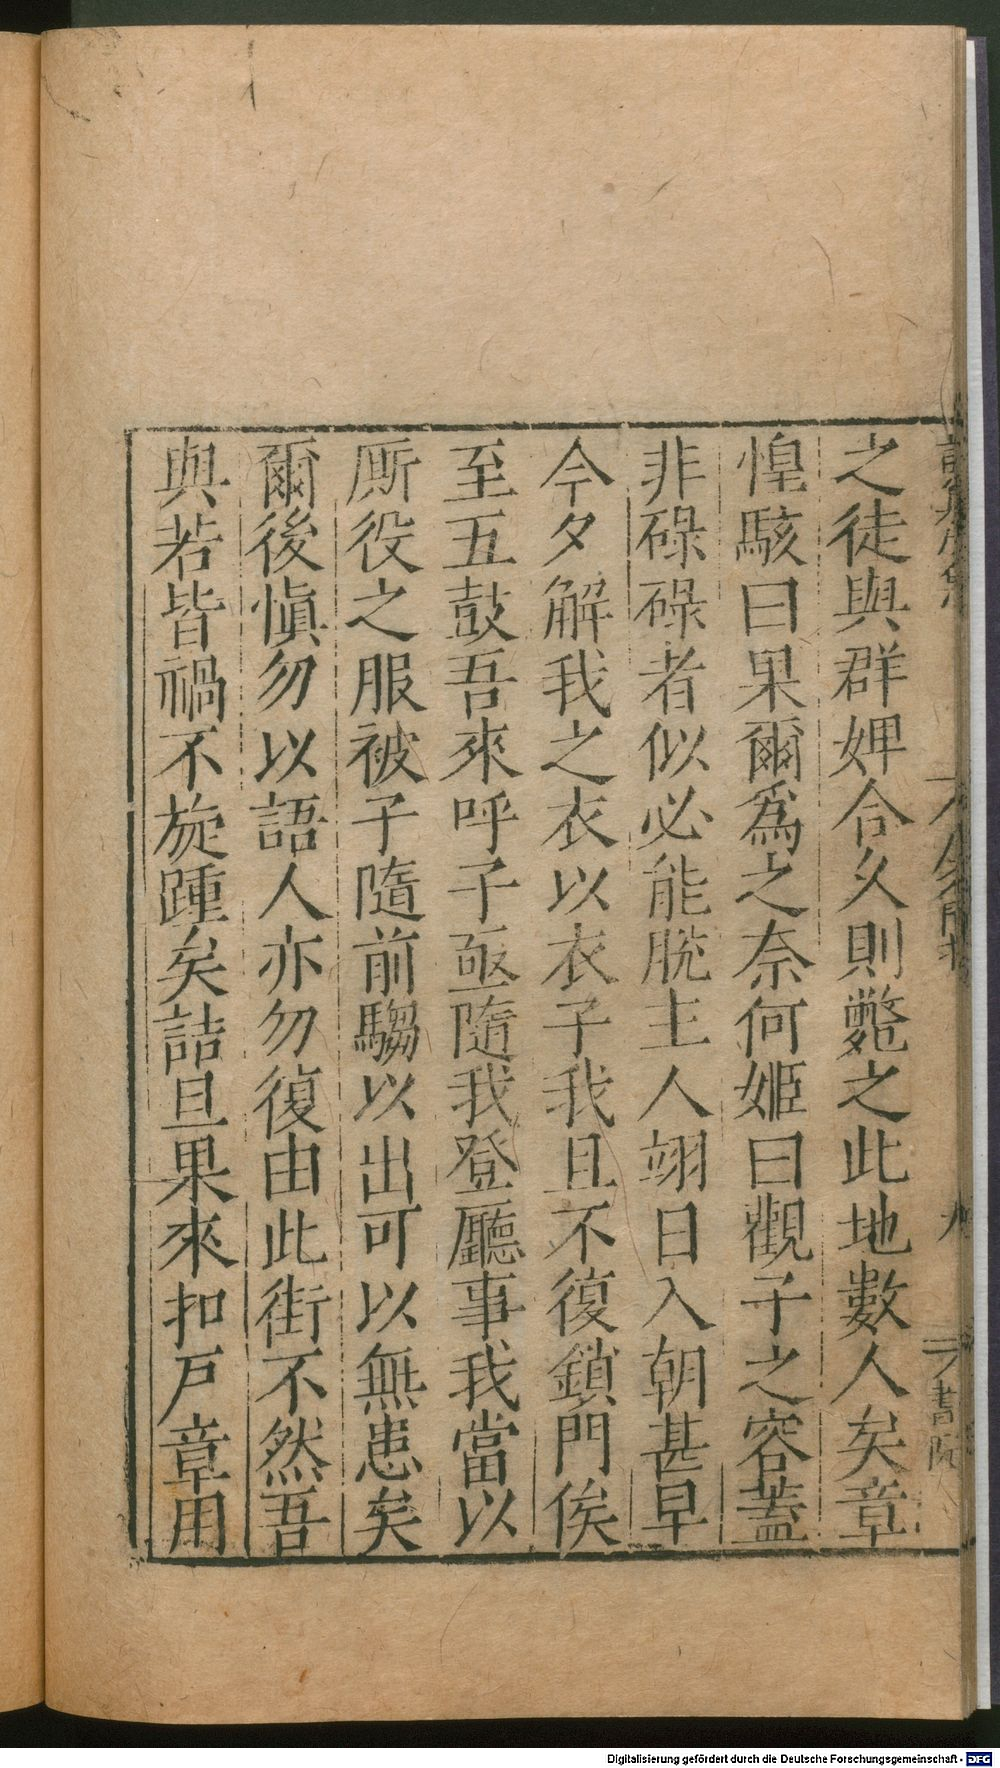 之徒與群婢合久則斃之此地數人矣章
惶駭曰果爾爲之奈何姬曰觀子之容蓋
非碌碌者似必能脫主人翊日入朝甚早
今夕解我之衣以衣子我且不復鎖門俟
至五鼓吾來呼子亟隨我登廳事我當以
厮役之服被子隨前騶以出可以無患矣
爾後愼勿以語人亦勿復由此街不然吾
與若皆禍不旋踵矣詰旦果來扣戶章用
Digitalisierung gefördert durch die Deutsche Forschungsgemeinschaft - DFG